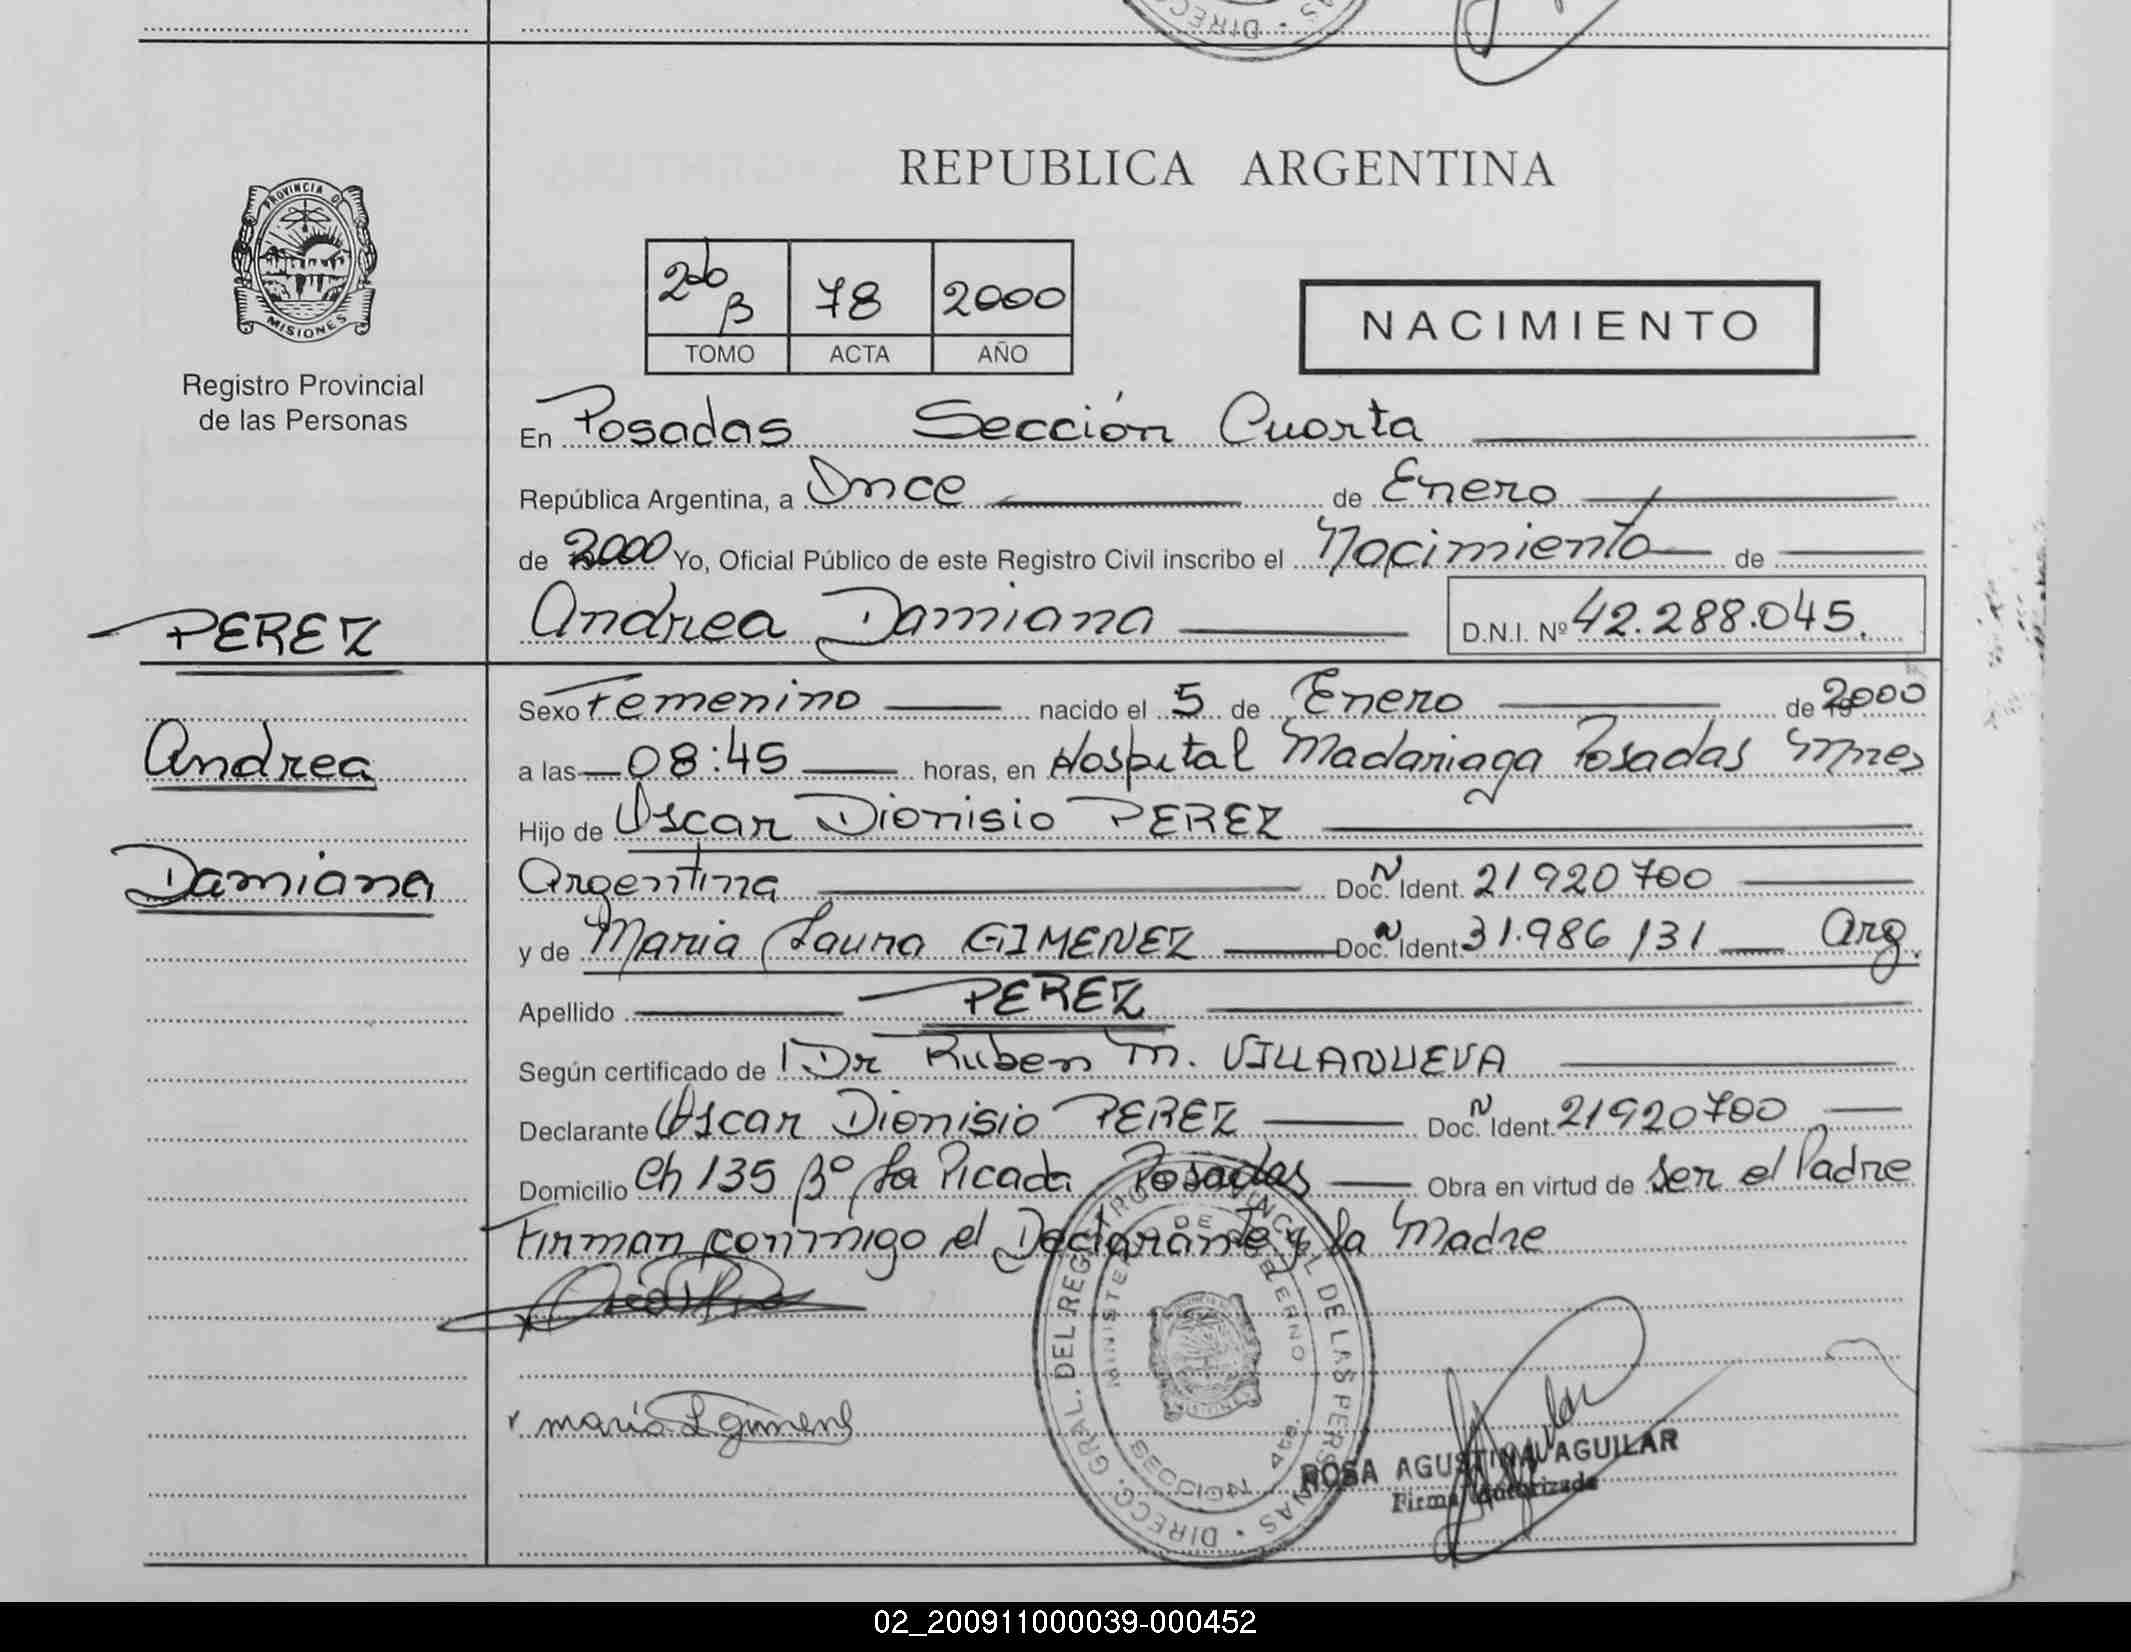 REPUBLICA ARGENTINA
PROVINCIA DE
MISIONES
Registro Provincial
de las Personas
78 2000
TOMO ACTA AÑO
NACIMIENTO
En Posadas Sección Cuarta
República Argentina, a Once de Enero
de 2000 Yo, Oficial Público de este Registro Civil inscribo el Nacimiento de
Andrea Damiana D.N.I. Nº 42.288.045.
PEREZ
Andrea
Damiana
Sexo Femenino nacido el 5 de Enero de 2000
a las 08:45 horas, en Hospital Madariaga Posadas Mnes
Hijo de Oscar Dionisio PEREZ
Argentina Doc. N Ident. 21920700
y de Maria Laura GIMENEZ Doc. N Ident. 31.986 131 Arg.
Apellido PEREZ
Según certificado de Dr Ruben M. VILLANUEVA
Declarante Oscar Dionisio PEREZ Doc. N Ident. 21920700
Domicilio Ch 135 Bº La Picada Posadas Obra en virtud de ser el Padre
Firman conmigo el Declarante y la Madre
DIRECC. GRAL. DEL REGISTRO PROVINCIAL DE LAS PERSONAS
MINISTERIO DE GOBIERNO
SECCION 4ta.
maria L gimenez
ROSA AGUSTINA AGUILAR
Firma Autorizada
02_200911000039-000452